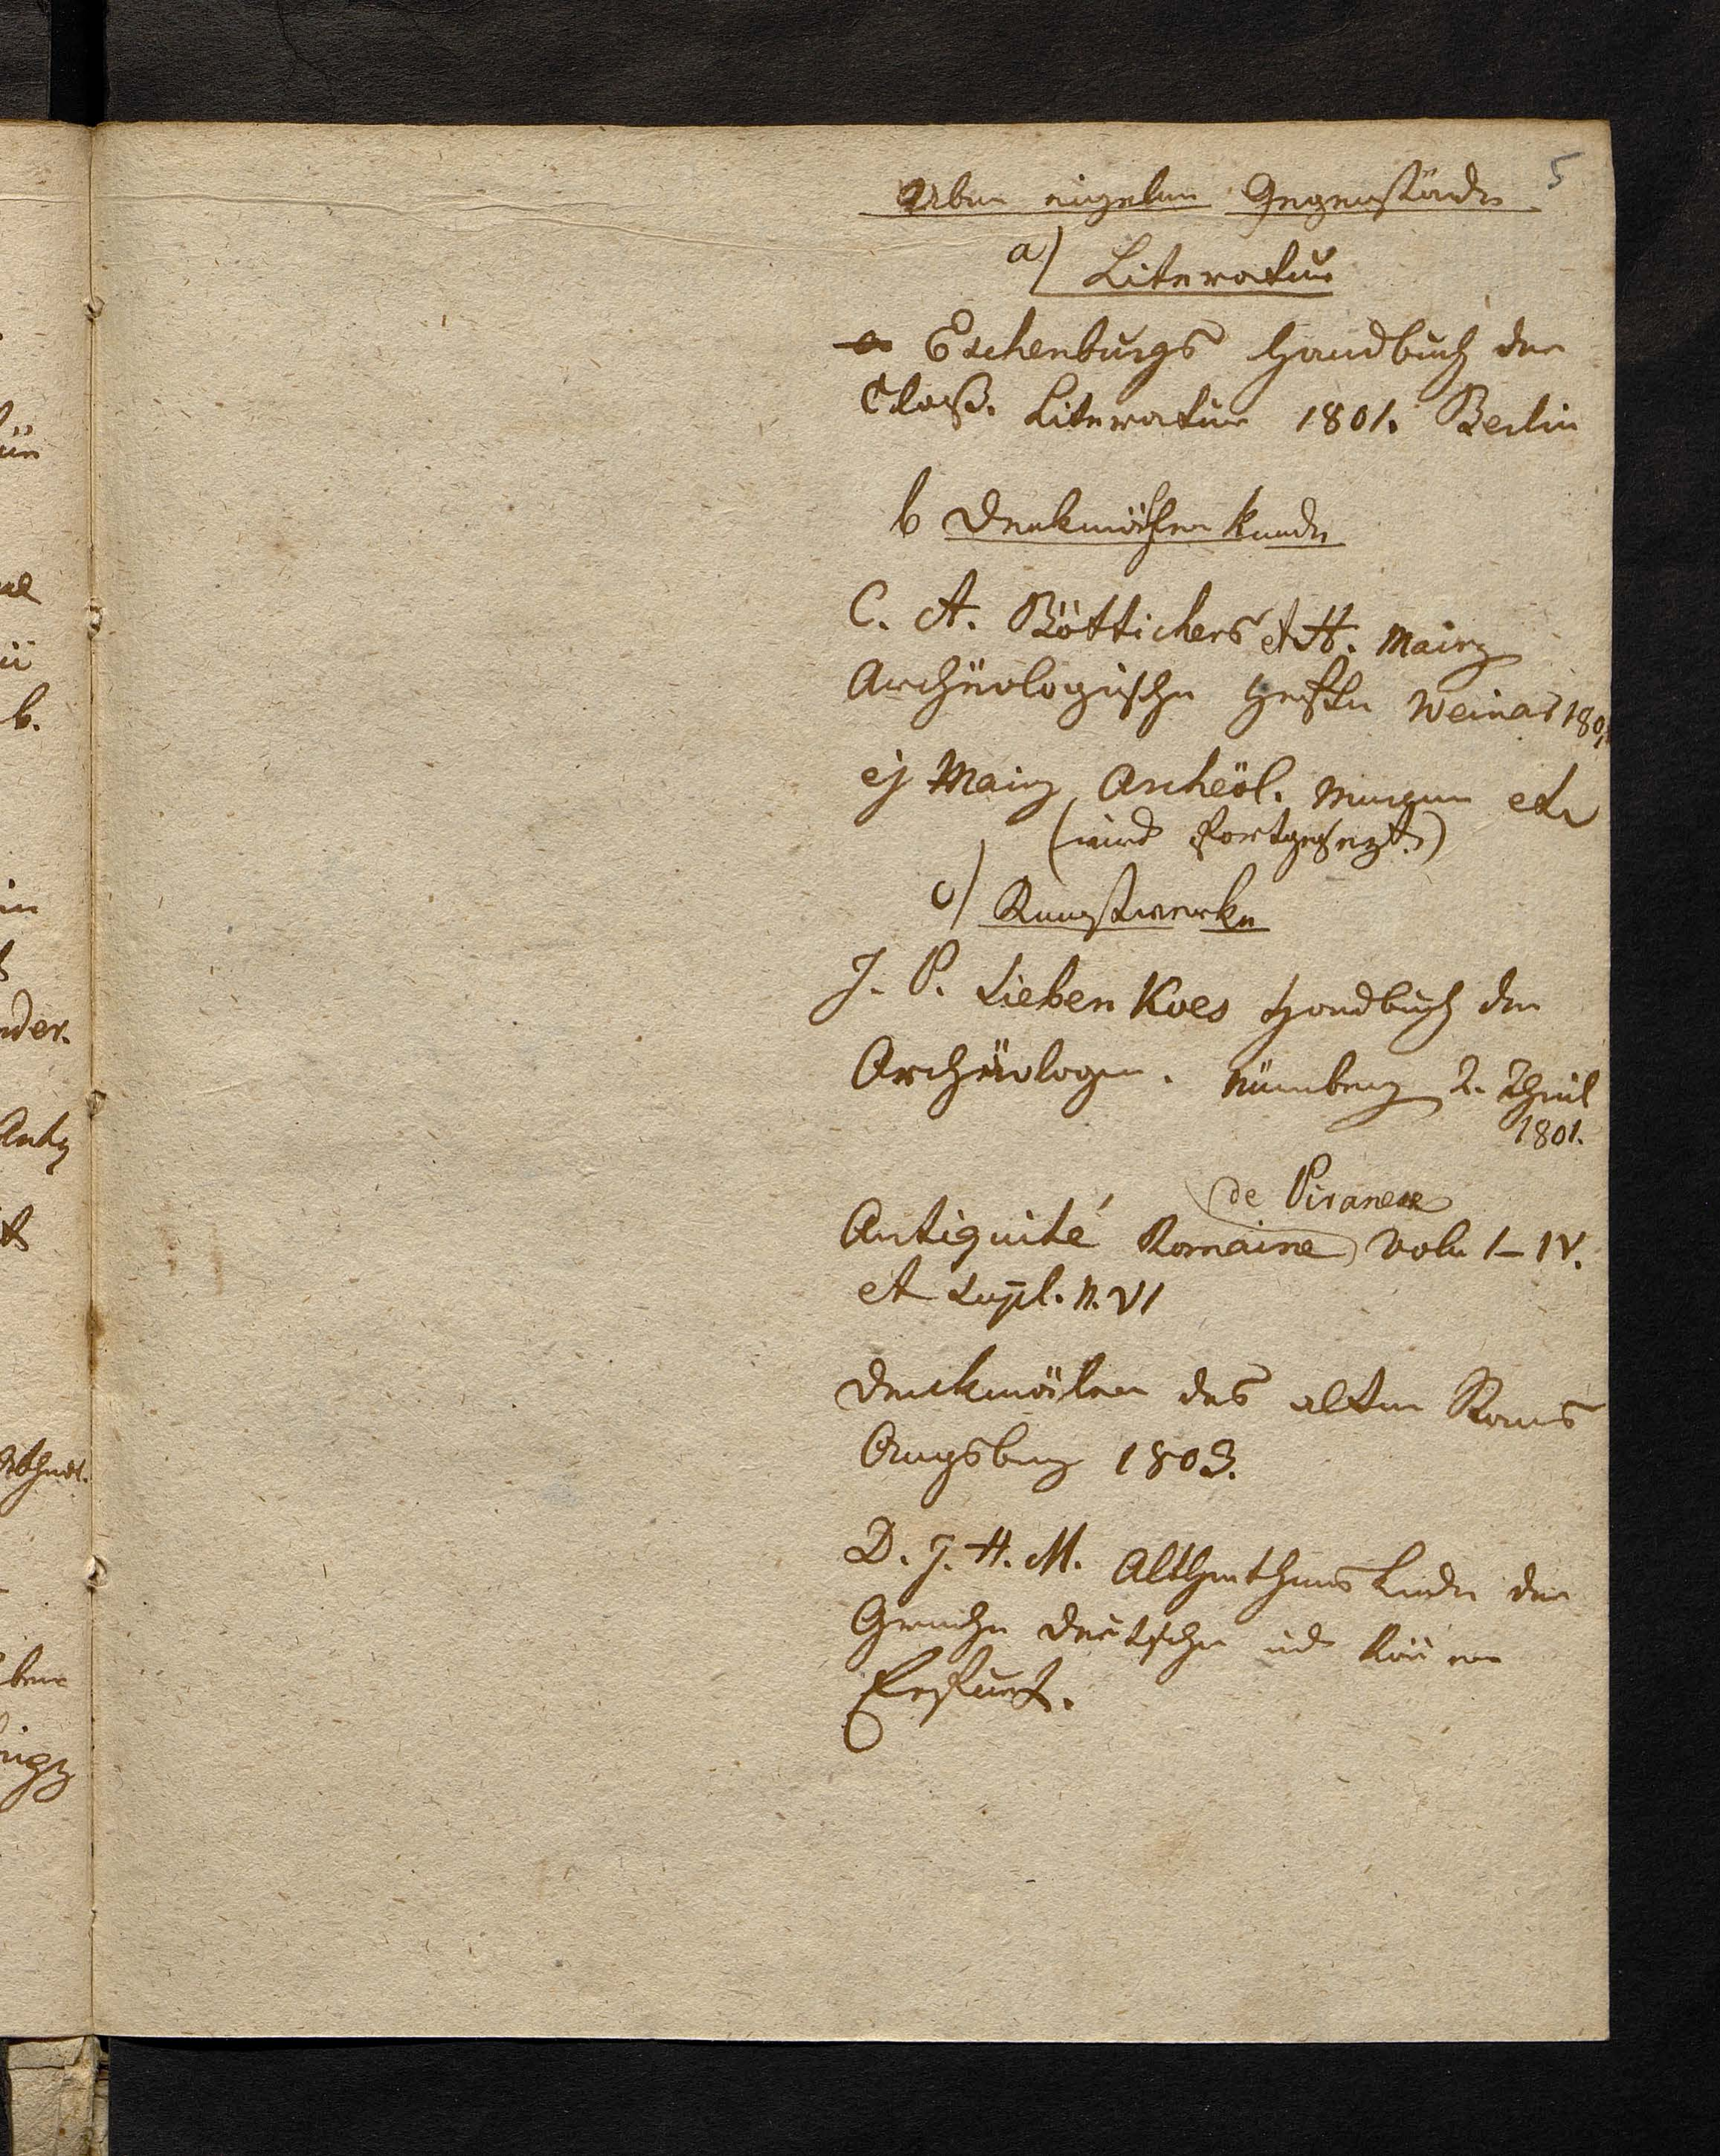 5
Über einzelne Gegenstände
a) Literatur
Eschenburgs Handbuch der
Claß. Literatur 1801. Berlin
b Denkmähler kunde
C. A. Böttichers et H. Mairz
Archäologische Hefte Weimar 1801
ej Mairz Archëol. etc
(wird fortgesezt.)
c) Kunstwerke
J. P. Siebenkees Handbuch der
Archäologie. Nürnberg 2. Theil
1801.
de Piranese
Antiquité Romaine vol. I–IV.
et Supl. n. VI
Denckmäler des alten Roms
Augsburg 1803.
D. J. H. M. Altherthums kunde der
Griechen Deutschen und Römer
Erfurt.